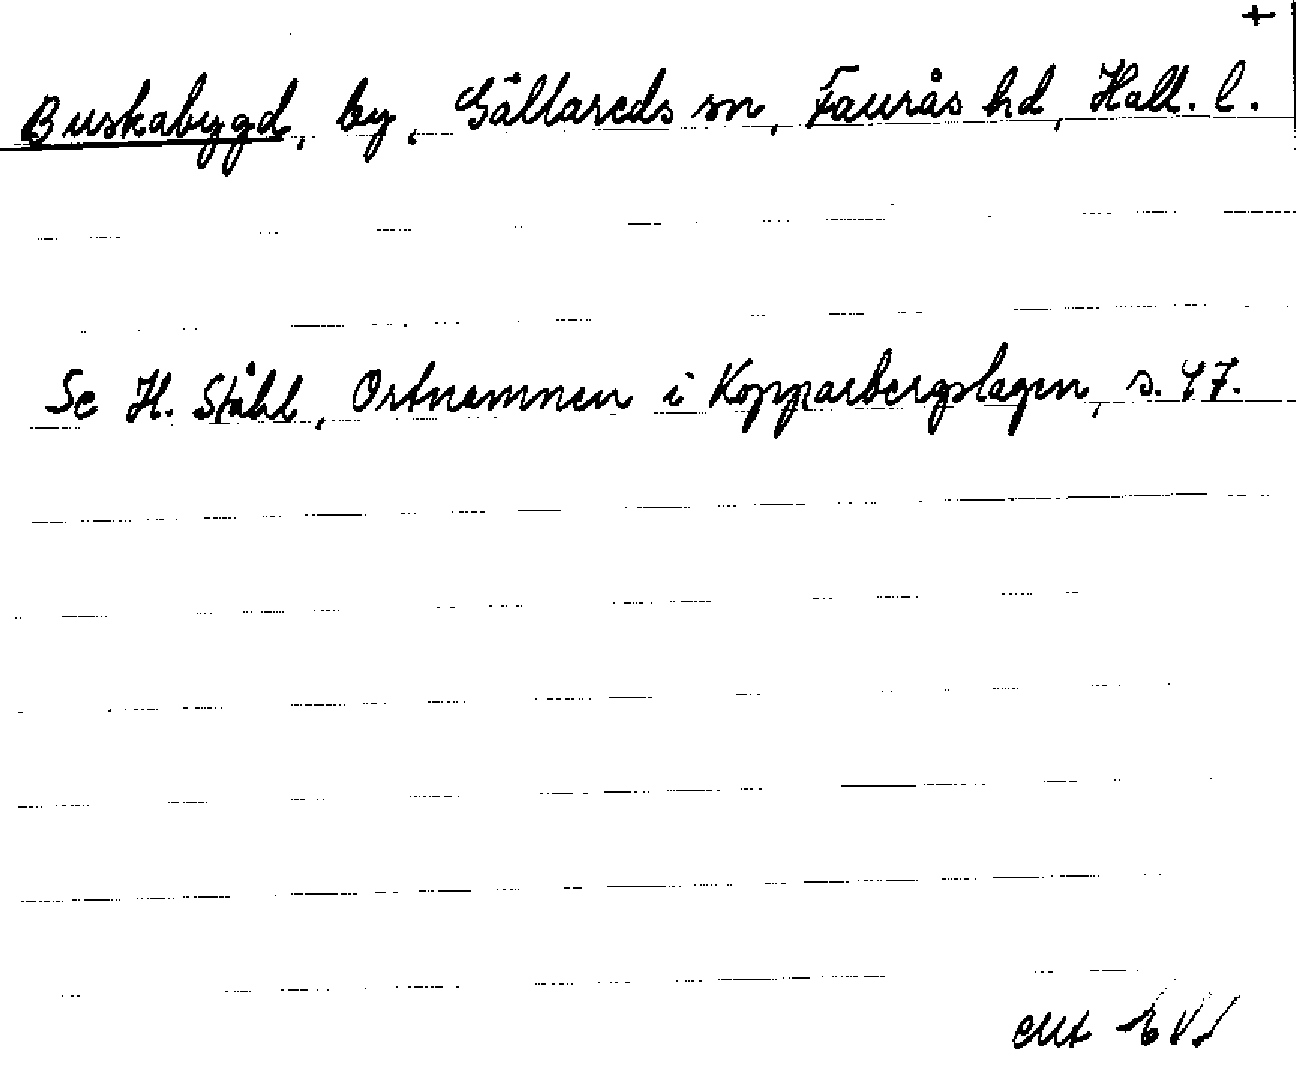 t
Buskabygd, by, Gällareds sn, Faurås hd, Hall. l.
Se H. Ståhl, Ortnamnen i Kopparbergslagen, s. 47.